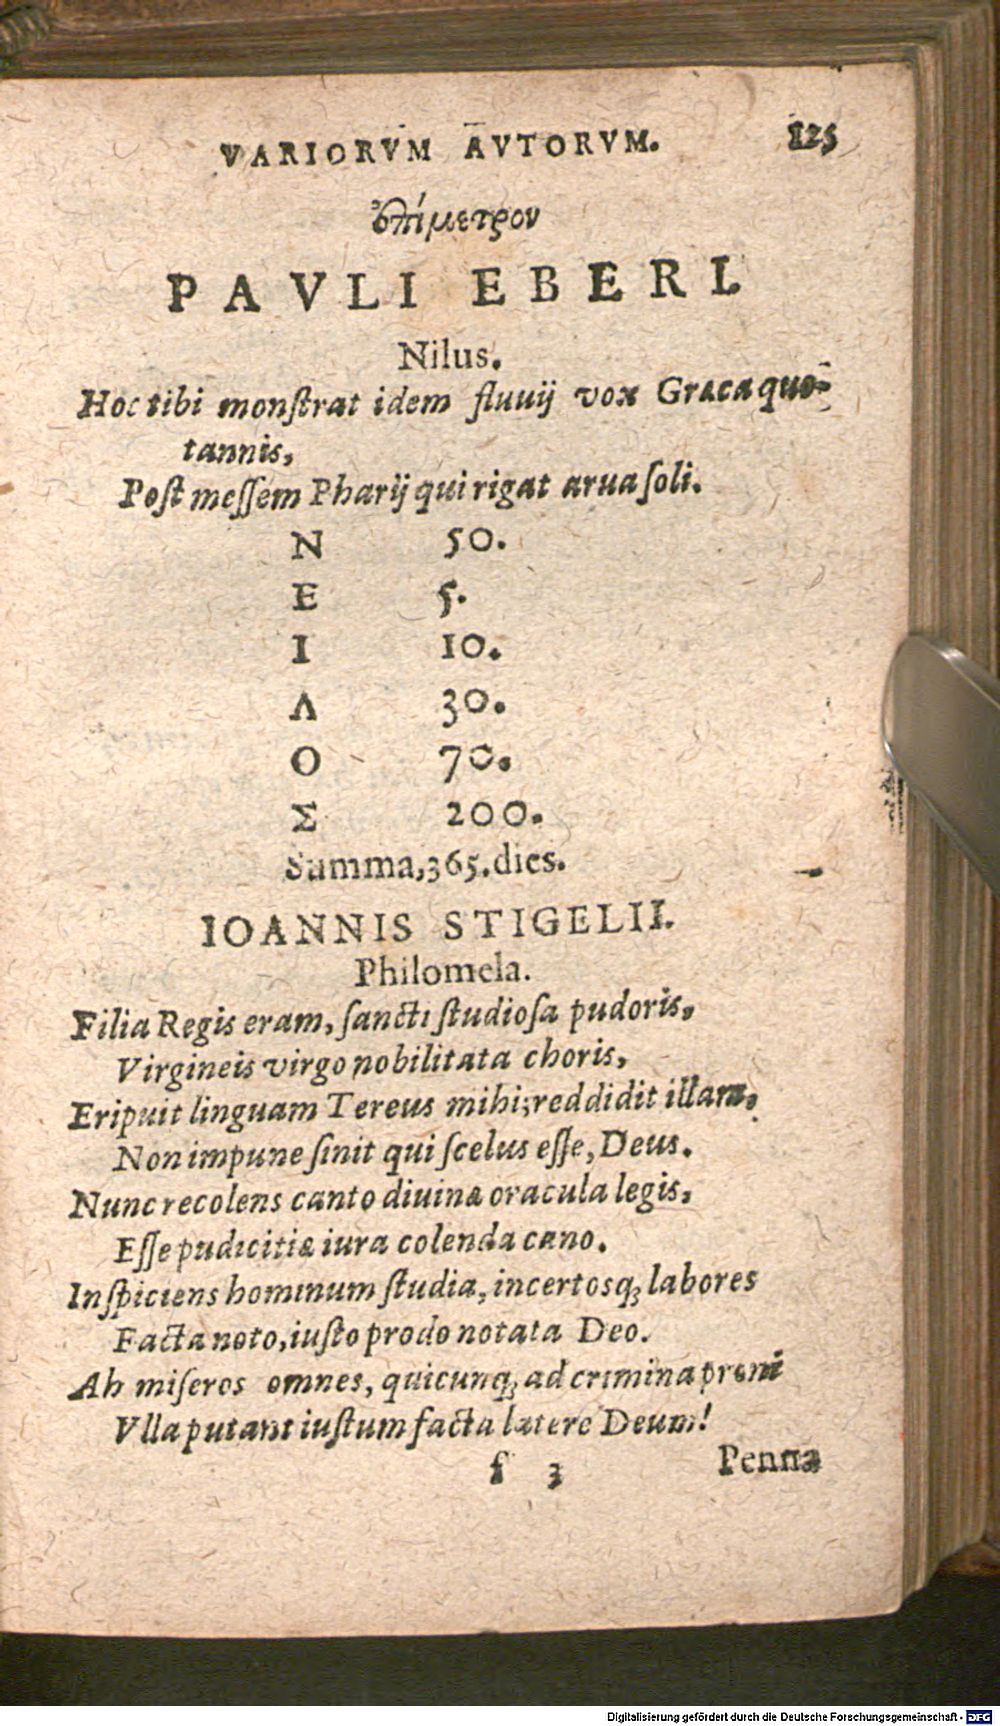 VARIORVM AVTORVM. 125
ἐπίμετρον
PAVLI EBERI.
Nilus.
Hoc tibi monſtrat idem fluuij vox Græca quo-
tannis,
Poſt meſſem Pharij qui rigat arua ſoli.
Ν 50.
Ε 5.
Ι 10.
Λ 30.
Ο 70.
Σ 200.
Summa, 365. dies.
IOANNIS STIGELII.
Philomela.
Filia Regis eram, ſancti ſtudioſa pudoris,
Virgineis virgo nobilitata choris,
Eripuit linguam Tereus mihi; reddidit illam,
Non impune ſinit qui ſcelus eſſe, Deus.
Nunc recolens canto diuinæ oracula legis,
Eſſe pudicitiæ iura colenda cano.
Inſpiciens hominum ſtudia, incertosq; labores
Facta noto, iuſto prodo notata Deo.
Ah miſeros omnes, quicunq; ad crimina proni
Vlla putant iuſtum facta latere Deum!
f 3 Pennæ
Digitalisierung gefördert durch die Deutsche Forschungsgemeinschaft - DFG